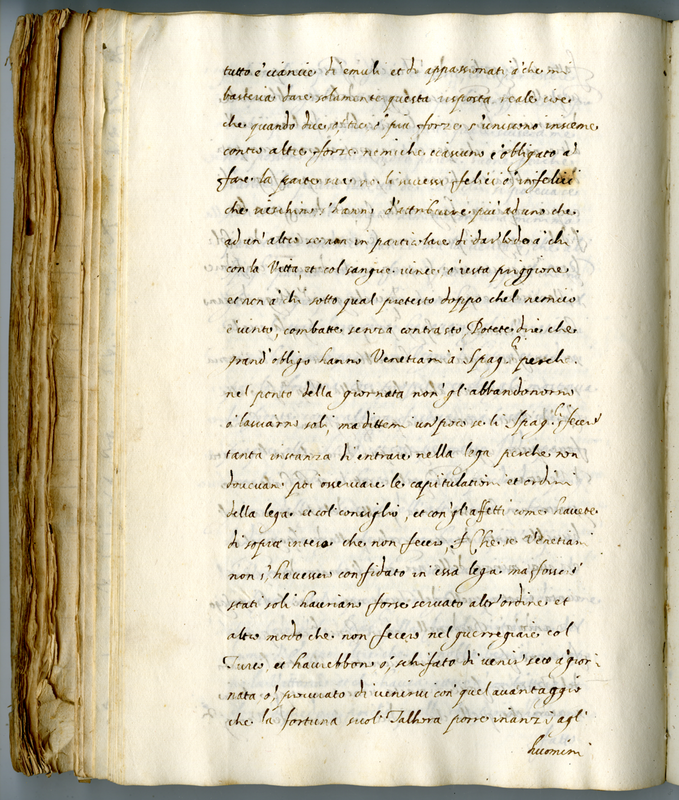 tutto è ciancie di emuli et di appassionati à che mi
bastava dare solamente questa risposta reale cioe
che quando due ò più forze s'uniscono insieme
contro altre forze nemiche ciascuno è obligato à
fare la parte sua ne li successi felici ò infelici
che s'hanno d'attribuire più ad uno che
ad un' altro se non in particolare di dar lode à chi
con la Vitta, et col sangue vince ò resta priggione
et non à chi sotto qual pretesto doppo chel nemico
è vinto, combatte senza contrasto Potete dire che
grand' obligo hanno Venetiani à Spag.li perche
nel ponto della giornata non gl'abbandonorno
ò lasciarno soli, ma ditemi un poco se li Spag.li fecero
tanta instanza di entrare nella lega perche non
dovevan poi osservare le capitulationi et ordini
della lega et col conseglio, et con gl'affetti come havete
di sopra inteso che non fecero, Che se Venetiani
non s'havessero confidato in essa lega ma fossero
stati soli havriano forse servato altr'ordine et
altro modo che non fecero nel guerregiare col
Turco et haverebbono ò schifato di venir seco à gior-
nata ò procurato di venirvi con quel avantaggio
che la fortuna suol Talhora porre inanzi agl'
huomini